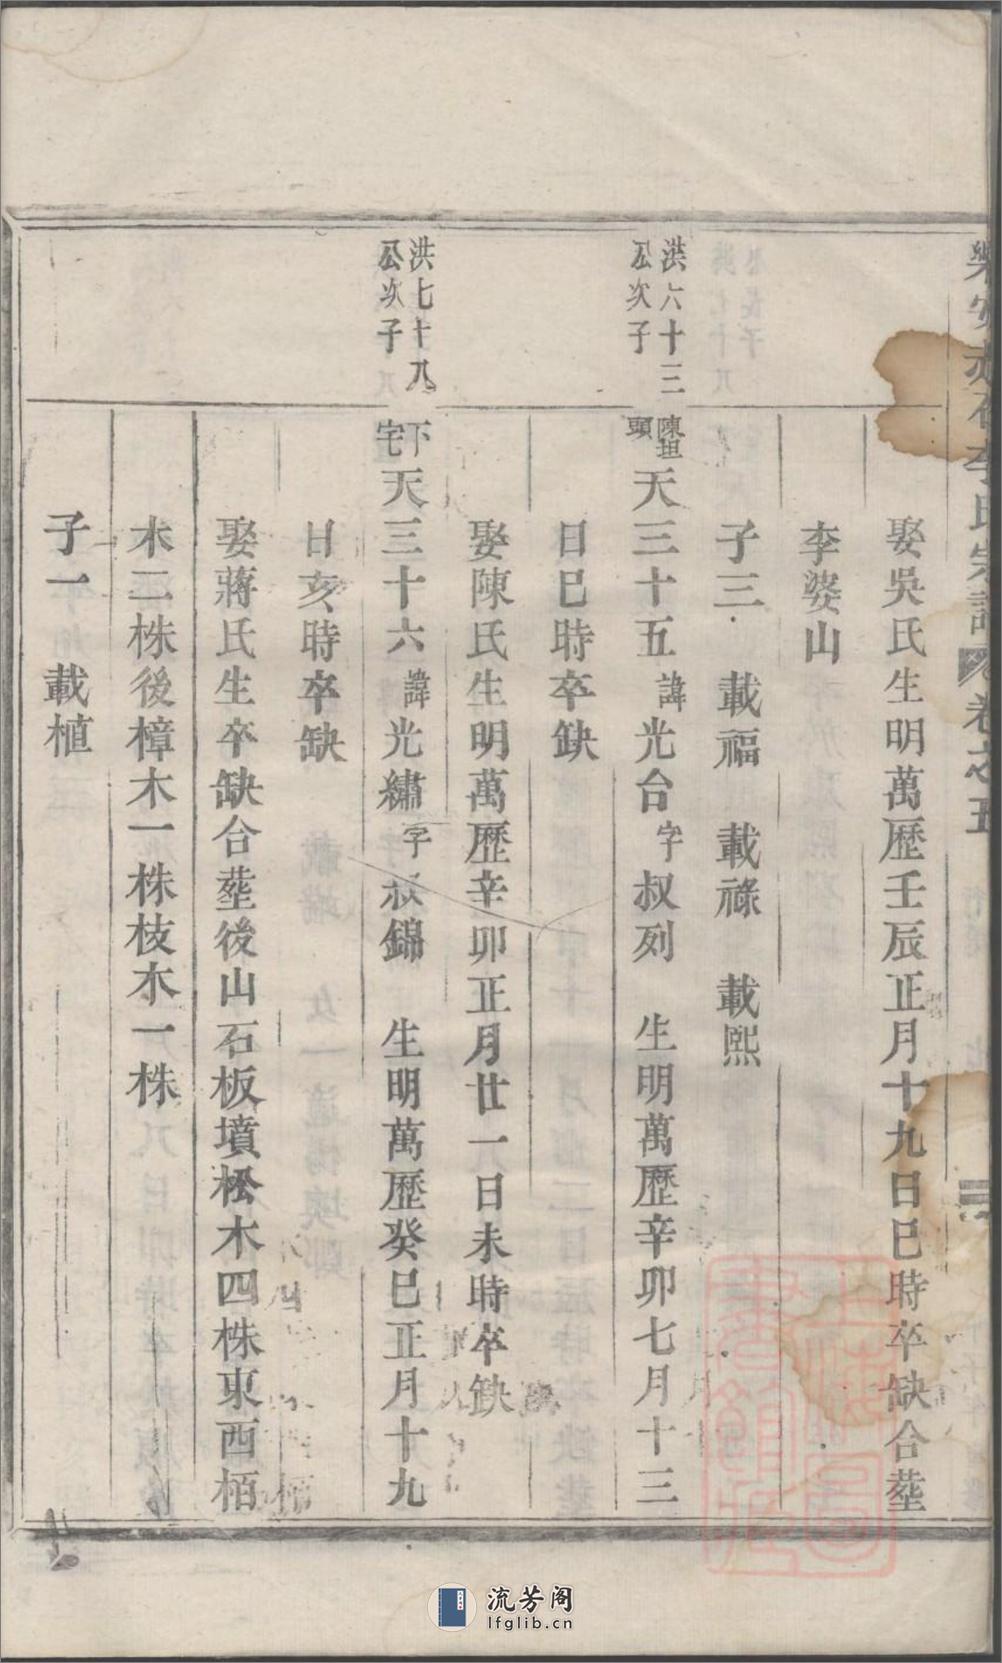 李氏宗譜 卷之五
娶吳氏生明萬歷壬辰正月十九日巳時卒缺合塟
李婆山
子三 載福 載祿 載熙
洪六十三
公次子
陳坦
頭
天三十五諱光台字叔列 生明萬歷辛卯七月十三
日巳時卒缺
娶陳氏生明萬歷辛卯正月廿一日未時卒缺
洪七十八
公次子
下
宅
天三十六諱光繡字叔錦 生明萬歷癸巳正月十九
日亥時卒缺
娶蔣氏生卒缺合塟後山石板墳松木四株東西栢
木二株後樟木一株枝木一株
子一 載植
流芳阁
lfglib.cn